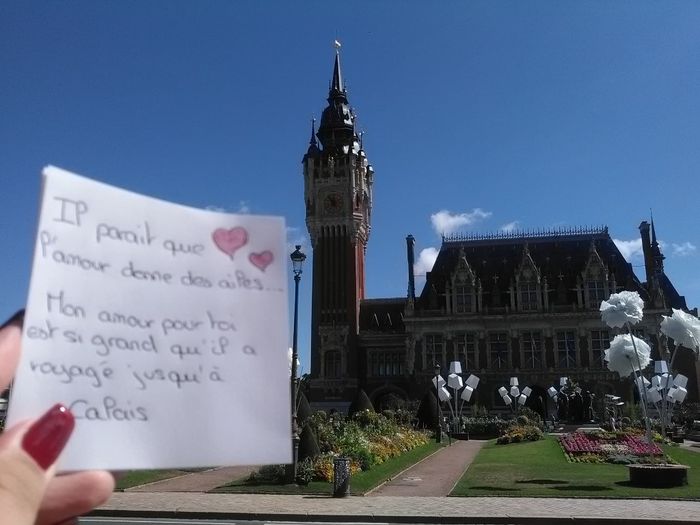 Il parait que
l'amour donne des ailes...
Mon amour pour toi
est si grand qu'il a
voyagé jusqu'à
Calais